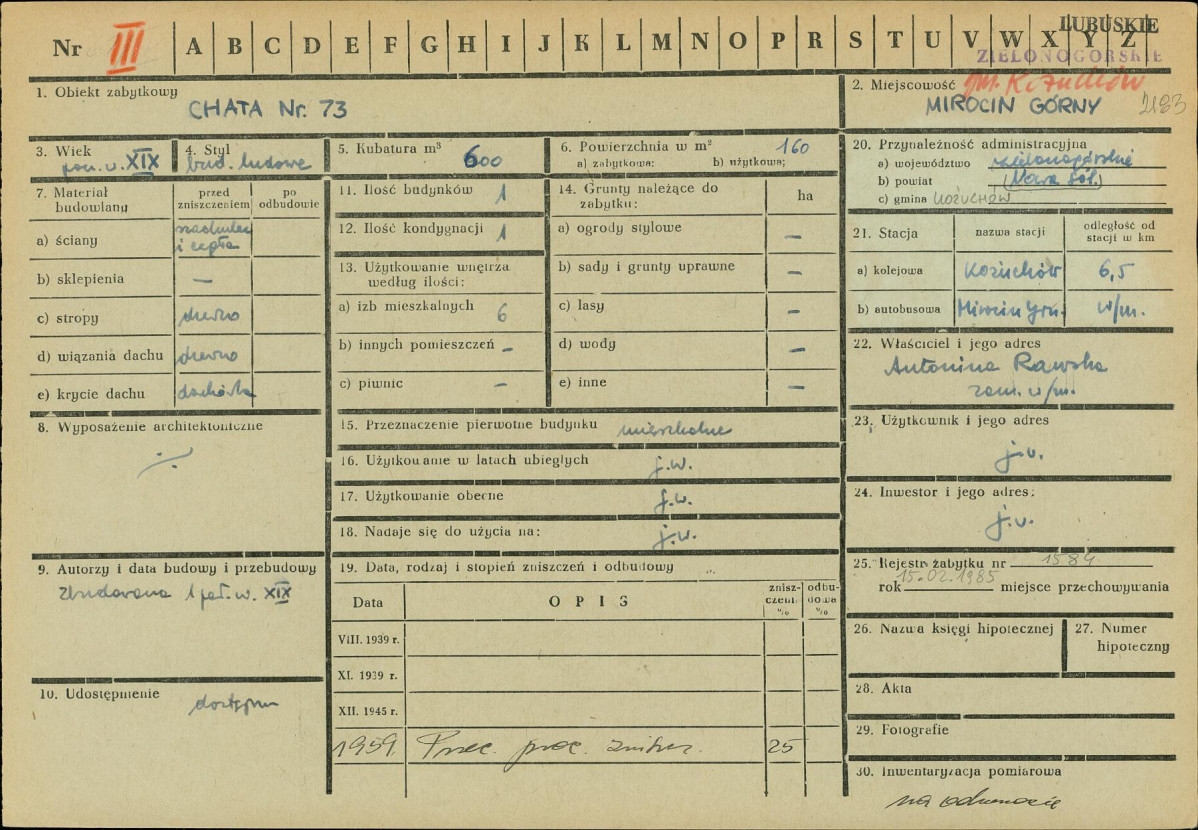 Nr III A B C D E F G H I J K L M N O P R S T U V W X Y Z
LUBUSKIE
ZIELONOGÓRSKIE
1. Obiekt zabytkowy
CHATA Nr. 73
2. Miejscowość gm. Kożuchów
MIROCIN GÓRNY 2183
3. Wiek
poł. w. XIX
4. Styl
bud. ludowe
5. Kubatura m³ 600
6. Powierzchnia w m² 160
a) zabytkowa: b) użytkowa:
7. Materiał budowlany
przed zniszczeniem
po odbudowie
a) ściany szachulec i cegła
b) sklepienia —
c) stropy drewno
d) wiązania dachu drewno
e) krycie dachu dachówka
8. Wyposażenie architektoniczne
·/·
9. Autorzy i data budowy i przebudowy
Zbudowana 1 poł. w. XIX
10. Udostępnienie
dostępny
11. Ilość budynków 1
12. Ilość kondygnacji 1
13. Użytkowanie wnętrza według ilości:
a) izb mieszkalnych 6
b) innych pomieszczeń –
c) piwnic –
14. Grunty należące do zabytku: ha
a) ogrody stylowe –
b) sady i grunty uprawne –
c) lasy –
d) wody –
e) inne –
15. Przeznaczenie pierwotne budynku mieszkalne
16. Użytkowanie w latach ubiegłych j.w.
17. Użytkowanie obecne j.w.
18. Nadaje się do użycia na: j.w.
19. Data, rodzaj i stopień zniszczeń i odbudowy
Data
OPIS
zniszczeń %
odbudowa %
VIII. 1939 r.
XI. 1939 r.
XII. 1945 r.
1959. 25
20. Przynależność administracyjna
a) województwo zielonogórskie
b) powiat (Nowa Sól.)
c) gmina KOŻUCHÓW
21. Stacja
nazwa stacji
odległość od stacji w km
a) kolejowa Kożuchów 6,5
b) autobusowa Mirocin Grn. w/m.
22. Właściciel i jego adres
Antonina Rawska
zam. w/m.
23. Użytkownik i jego adres
j.w.
24. Inwestor i jego adres:
j.w.
25. Rejestr zabytku nr 1584
rok 15.02.1985 miejsce przechowywania
26. Nazwa księgi hipotecznej
27. Numer hipoteczny
28. Akta
29. Fotografie
30. Inwentaryzacja pomiarowa
na odwrocie